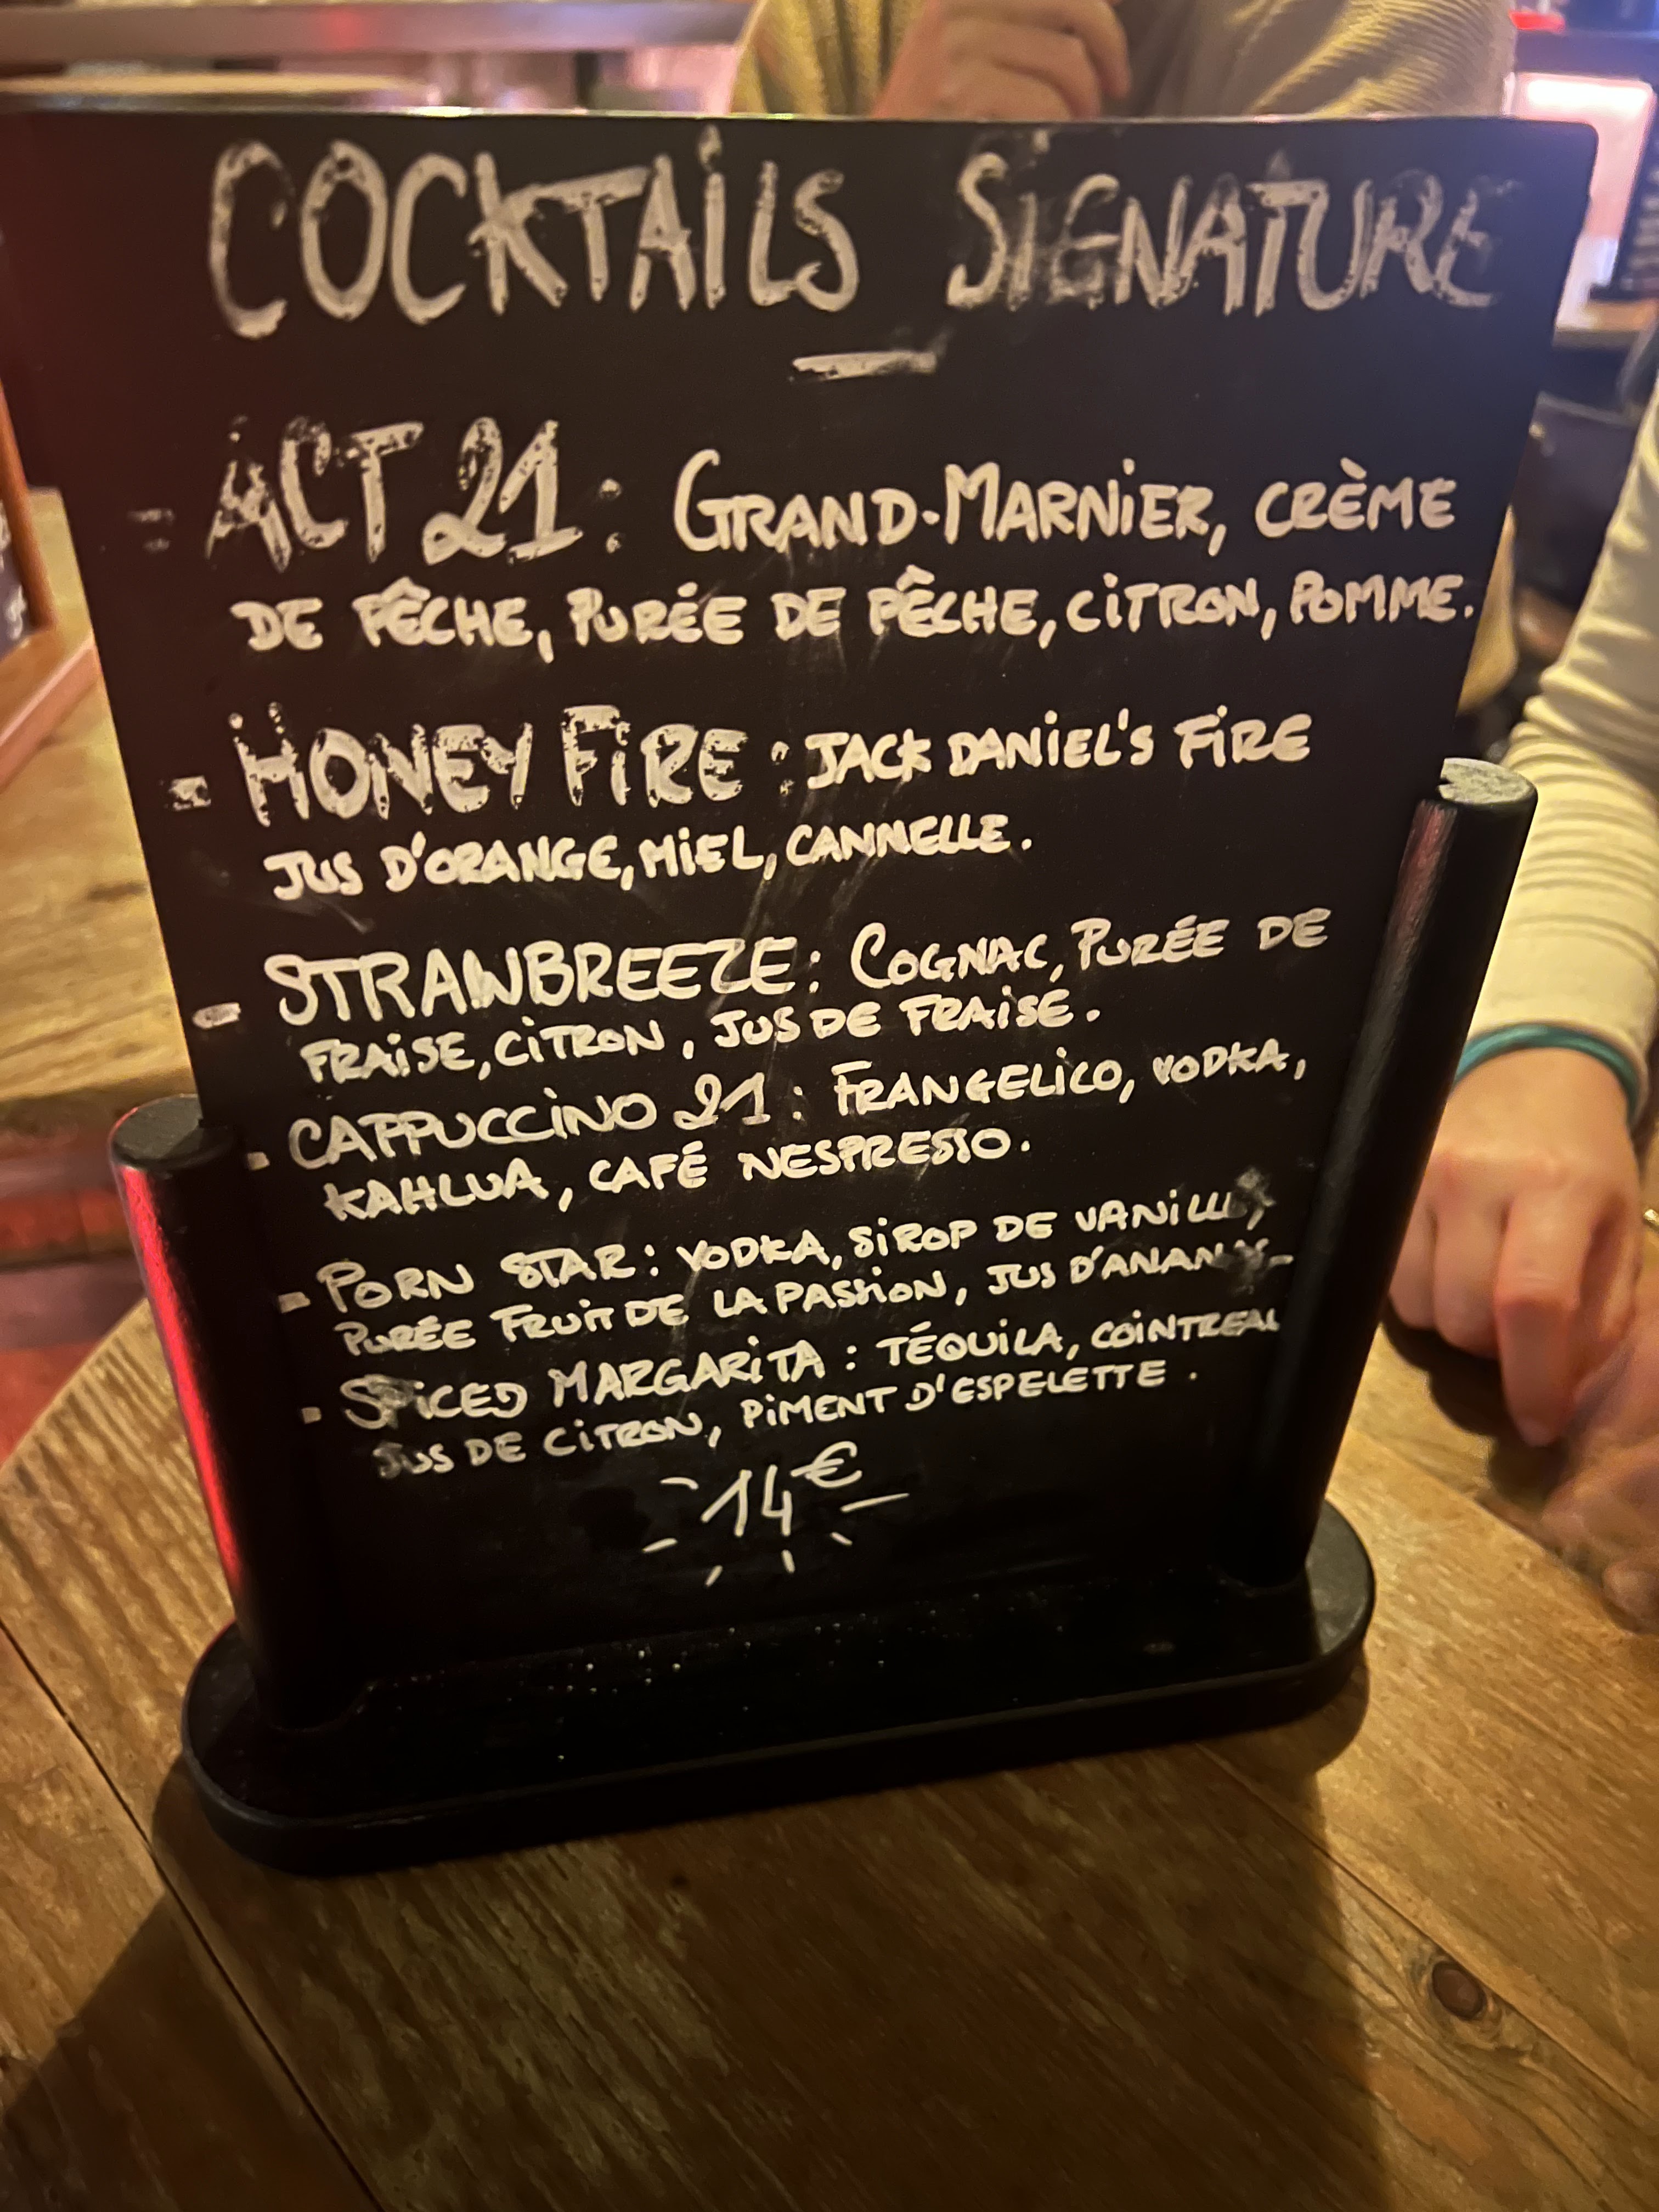 COCKTAILS SIGNATURE
- ACT 21 : GRAND-MARNIER, CRÈME
DE PÊCHE, PURÉE DE PÊCHE, CITRON, POMME.
- HONEY FIRE : JACK DANIEL'S FIRE
JUS D'ORANGE, MIEL, CANNELLE.
- STRAWBREEZE : COGNAC, PURÉE DE
FRAISE, CITRON, JUS DE FRAISE.
- CAPPUCCINO 21 : FRANGELICO, VODKA,
KAHLUA, CAFÉ NESPRESSO.
- PORN STAR : VODKA, SIROP DE VANILLE,
PURÉE FRUIT DE LA PASSION, JUS D'ANANAS.
- SPICED MARGARITA : TÉQUILA, COINTREAU
JUS DE CITRON, PIMENT D'ESPELETTE.
14€